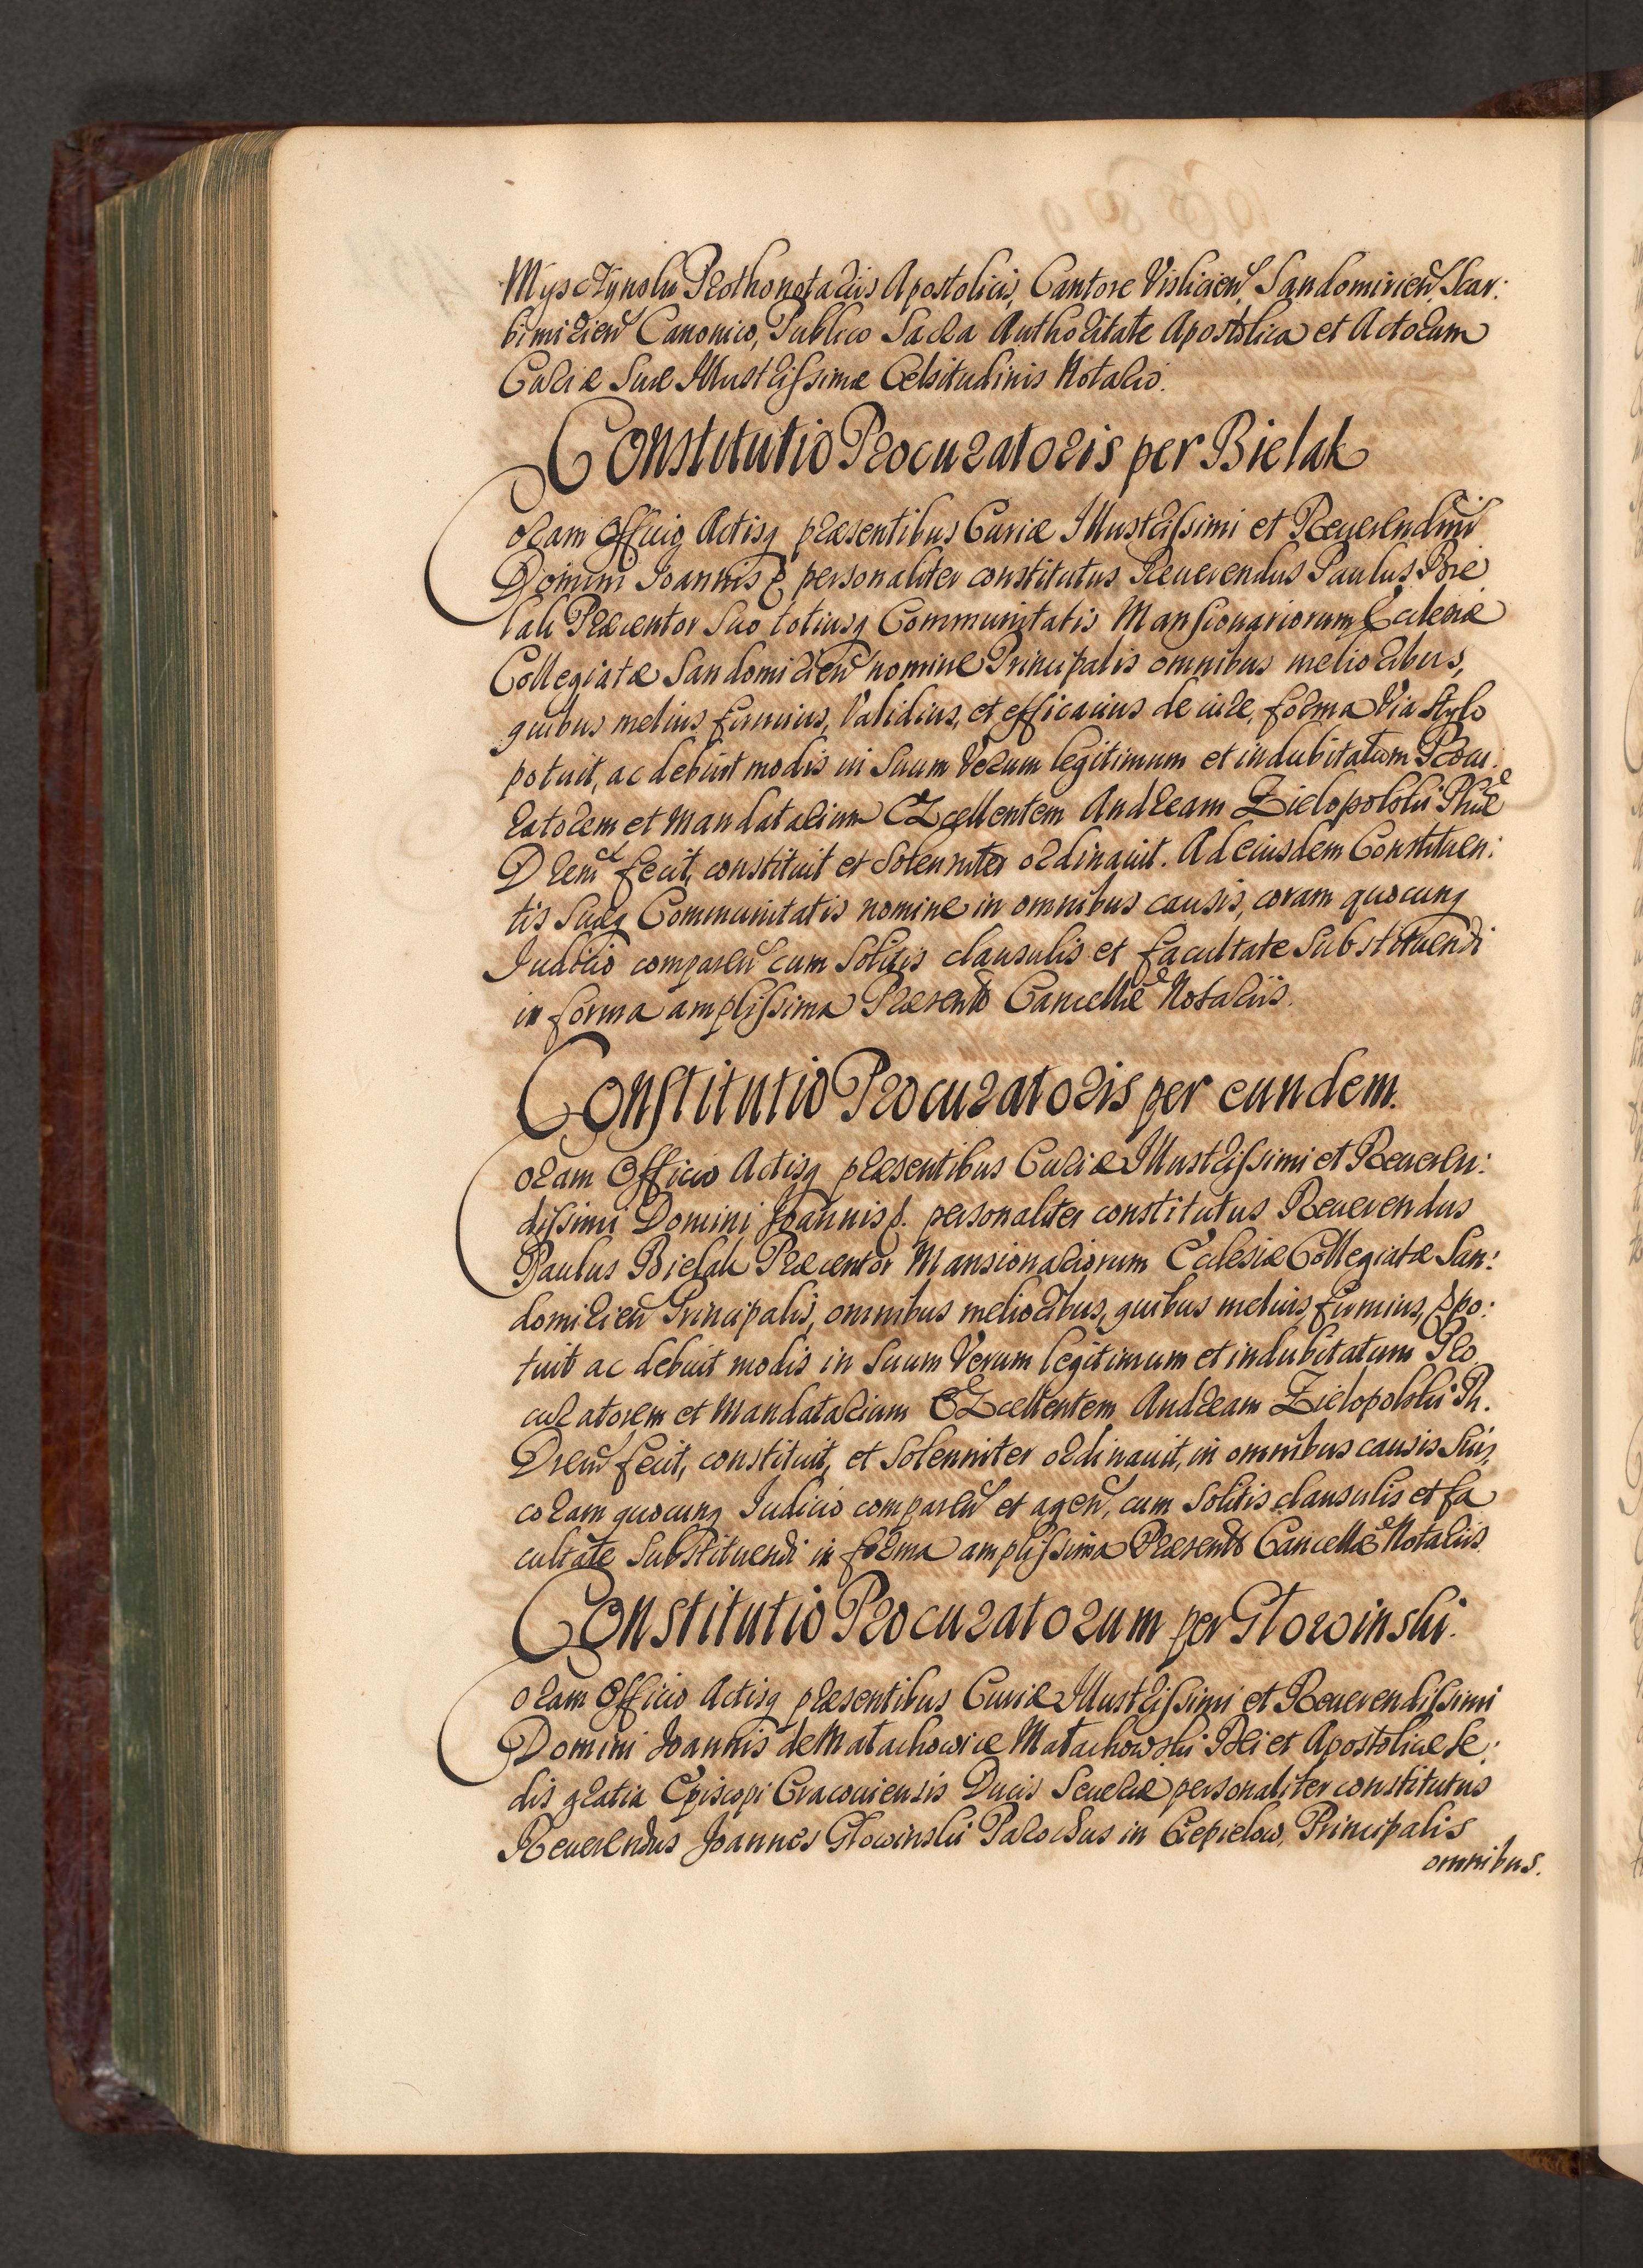 Myszkynski Prothonotariis Apostolicis, Cantore Vislicien, Sandomirien, Scar:
bimirien Canonico, Publico Sacra Authoritate Apostolica et Actorum
Curiæ Suæ Illustrissimæ Celsitudinis Notario.
Constitutio Procuratoris per Bielak
Coram Officio Actisq præsentibus Curiæ Illustrissimi et Reuerendmi
Domini Joannis personaliter constitutus Reuerendus Paulus Bie
lak Præcentor Suo totiusq Communitatis Mansionariorum Ecclesiæ
Collegiatæ Sandomirien nomine Principalis omnibus melioribus,
quibus melius firmius, Validius, et efficacius de iure, forma Via Stylo
potuit, ac debuit modis in Suum Verum legitimum et indubitatum Procu:
ratorem et Mandatarium Excellentem Andream Zielopolski Phiæ
Drem fecit, constituit et Solenniter ordinauit. Ad eiusdem Constituen:
tis Suæq Communitatis nomine in omnibus causis, coram quocunq
Iudicio comparen cum Solitis clausulis et facultate Substituendi
in forma amplissima Præsentib Cancellæ Notariis.
Constitutio Procuratoris per eundem.
Coram Officio Actisq præsentibus Curiæ Illustrissimi et Reueren:
dissimi Domini Joannis personaliter constitutus Reuerendus
Paulus Bielak Præcentor Mansionariorum Ecclesiæ Collegiatæ San:
domirien Principalis, omnibus melioribus, quibus melius, firmius, po:
tuit ac debuit modis in Suum Verum legitimum et indubitatum Pro
curatorem et Mandatarium Excellentem Andream Zielopolski Ph.
Drem fecit, constituit, et Solenniter ordinauit, in omnibus causis Suis,
coram quocunq Iudicio comparen et agen, cum Solitis clausulis et fa
cultate Substituendi in forma amplissima Præsentib Cancellæ Notariis
Constitutio Procuratorum per Głowinski.
Coram Officio Actisq præsentibus Curiæ Illustrissimi et Reuerendissimi
Domini Joannis de Małachowice Małachowski Dei et Apostolicæ Se:
dis gratia Episcopi Cracouiensis Ducis Seueriæ personaliter constitutus
Reuerendus Joannes Głowinski Parochus in Ciepielow, Principalis
omnibus.